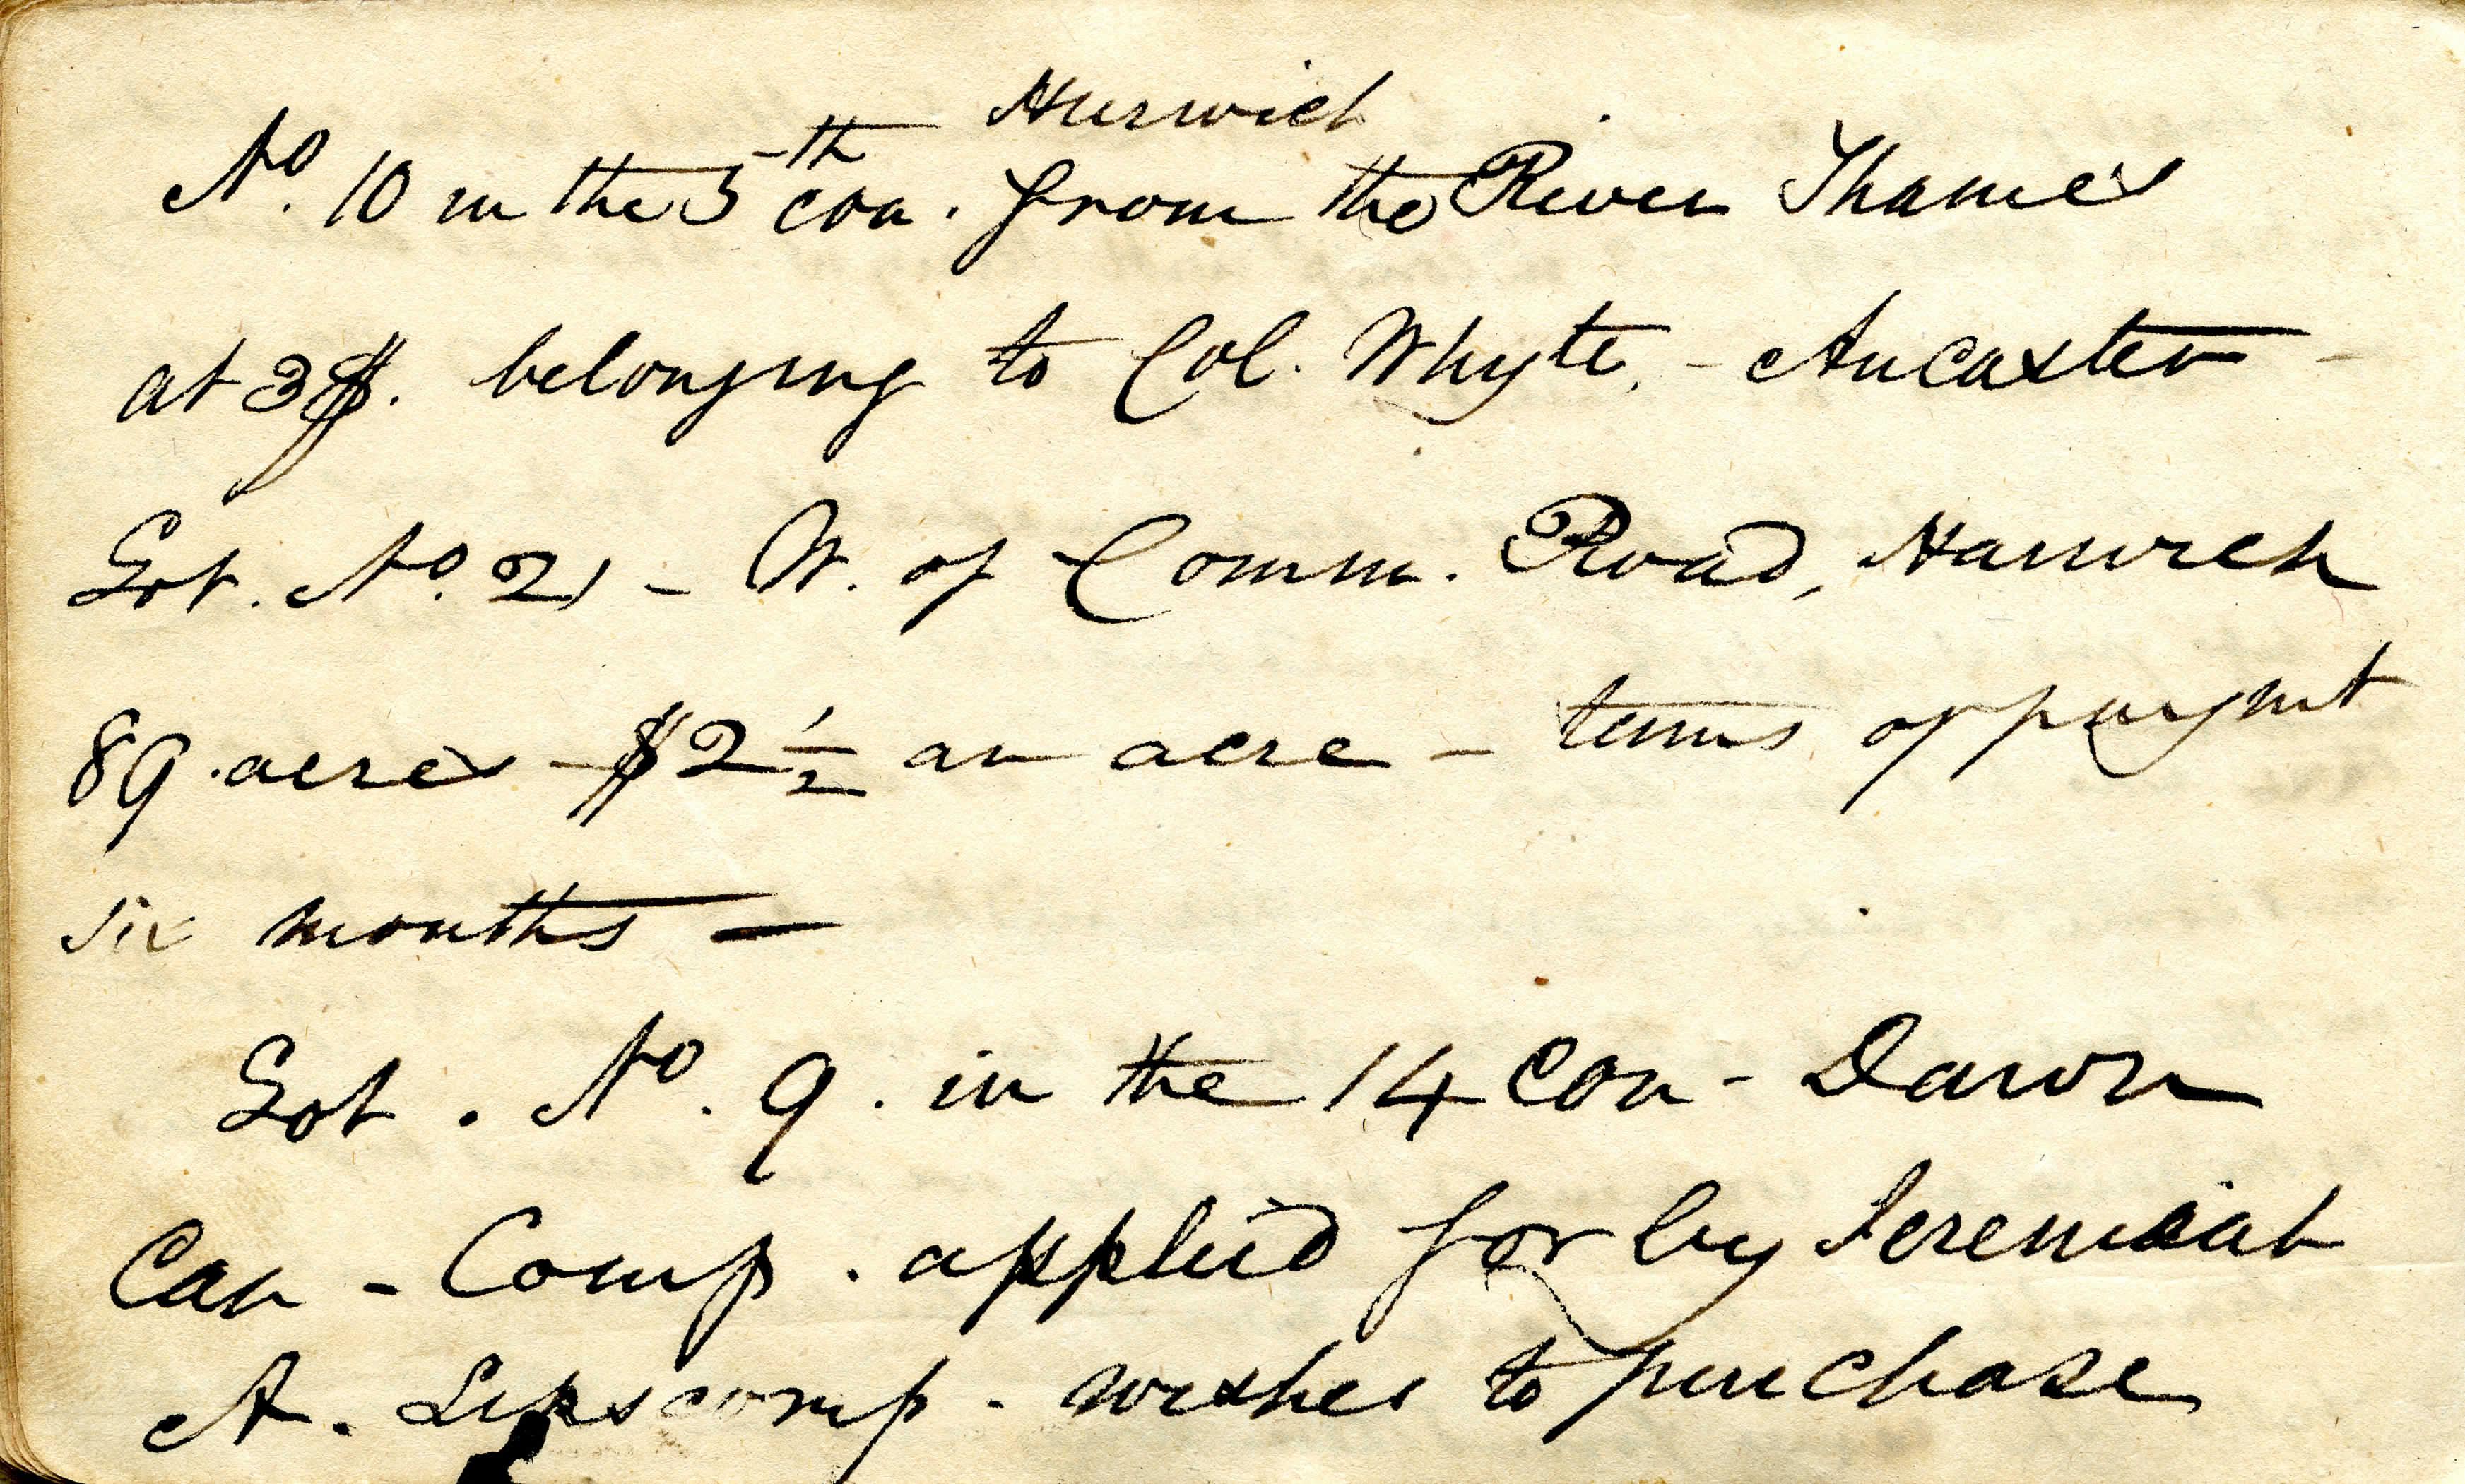 Harwich
No. 10 in the 5th con. from the River Thames
at 3$. belonging to Col. Whyte, - Ancaster -
Lot. No. 21 - W. of Comm. Road, Harwich
89 acres - $2 1/2 an acre - terms of paymt
six months -
Lot. No. 9. in the 14 Con - Dawn
Can - Comp. applied for by Jeremiah
A. Lipscomp - wishes to purchase